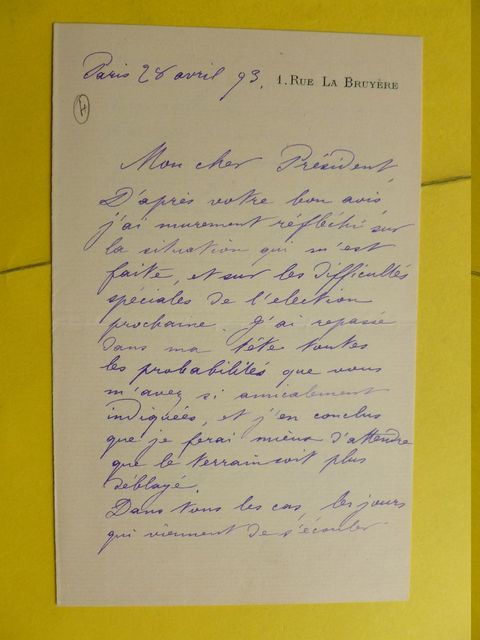 Paris 28 avril 93. 1. RUE LA BRUYÈRE
Mon cher Président,
D'après votre bon avis
j'ai murement réfléchi sur
la situation qui m'est
faite, et sur les difficultés
spéciales de l'election
prochaine. J'ai repassé
dans ma tête toutes
les probabilités que vous
m'avez si amicalement
indiquées, et j'en conclus
que je ferai mieux d'attendre
que le terrain soit plus
déblayé.
Dans tous les cas, les jours
qui viennent de s'écouler